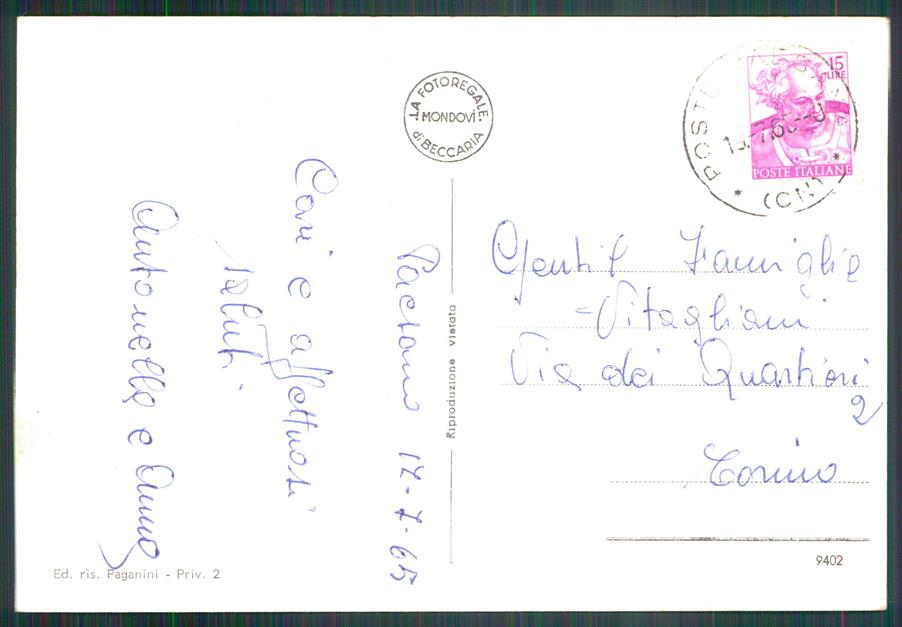 LA FOTOREGALE
MONDOVÌ
di BECCARIA
15
LIRE
POSTE ITALIANE
(CN)
Paesana 17-7-65
Cari e affettuosi
saluti
Antonella e Anna
Riproduzione vietata
Gentil Famiglia
Vitagliani
Via dei Quartieri
2
Torino
Ed. ris. Paganini - Priv. 2
9402